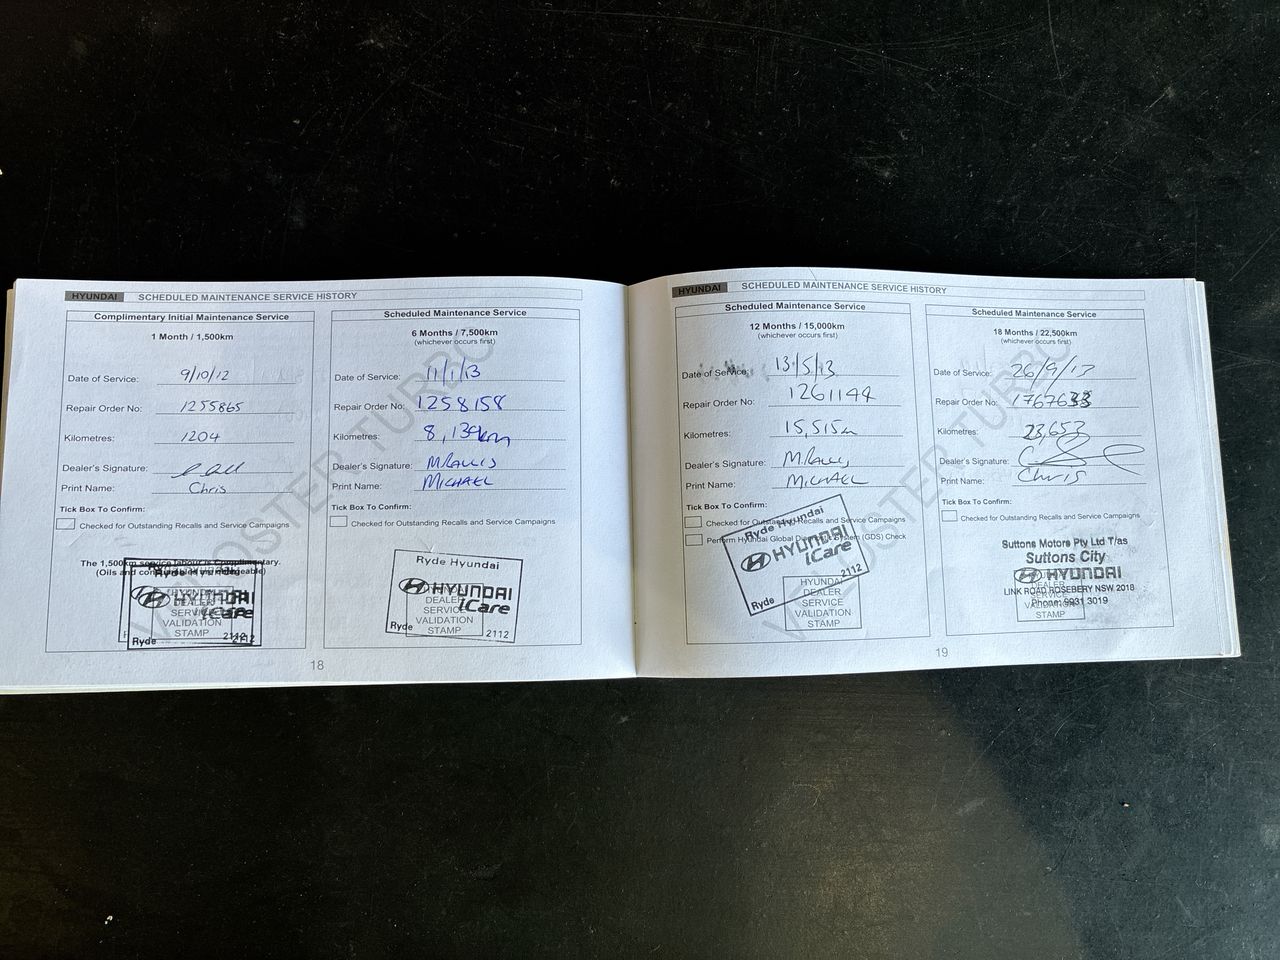 HYUNDAI SCHEDULED MAINTENANCE SERVICE HISTORY
Complimentary Initial Maintenance Service
1 Month / 1,500km
Date of Service: 9/10/12
Repair Order No: 1255865
Kilometres: 1204
Dealer's Signature:
Print Name: Chris
Tick Box To Confirm:
Checked for Outstanding Recalls and Service Campaigns
The 1,500km service labour is Complimentary.
(Oils and consumables are chargeable)
Ryde Hyundai
HYUNDAI
iCare
DEALER
SERVICE
VALIDATION
STAMP
Ryde 2112
Scheduled Maintenance Service
6 Months / 7,500km
(whichever occurs first)
Date of Service: 11/1/13
Repair Order No: 1258158
Kilometres: 8,139km
Dealer's Signature:
Print Name: MICHAEL
Tick Box To Confirm:
Checked for Outstanding Recalls and Service Campaigns
Ryde Hyundai
HYUNDAI
iCare
HYUNDAI
DEALER
SERVICE
VALIDATION
STAMP
Ryde 2112
VELOSTER TURBO
18
HYUNDAI SCHEDULED MAINTENANCE SERVICE HISTORY
Scheduled Maintenance Service
12 Months / 15,000km
(whichever occurs first)
Date of Service: 13/5/13
Repair Order No: 1261144
Kilometres: 15,515km
Dealer's Signature:
Print Name: MICHAEL
Tick Box To Confirm:
Checked for Outstanding Recalls and Service Campaigns
Perform Hyundai Global Diagnostic System (GDS) Check
Ryde Hyundai
HYUNDAI
iCare
Ryde 2112
HYUNDAI
DEALER
SERVICE
VALIDATION
STAMP
Scheduled Maintenance Service
18 Months / 22,500km
(whichever occurs first)
Date of Service: 26/9/13
Repair Order No:
Kilometres: 23,653
Dealer's Signature:
Print Name: Chris
Tick Box To Confirm:
Checked for Outstanding Recalls and Service Campaigns
Suttons Motors Pty Ltd T/as
Suttons City
HYUNDAI
LINK ROAD ROSEBERY NSW 2018
Phone: 9931 3019
SERVICE
VALIDATION
STAMP
VELOSTER TURBO
19